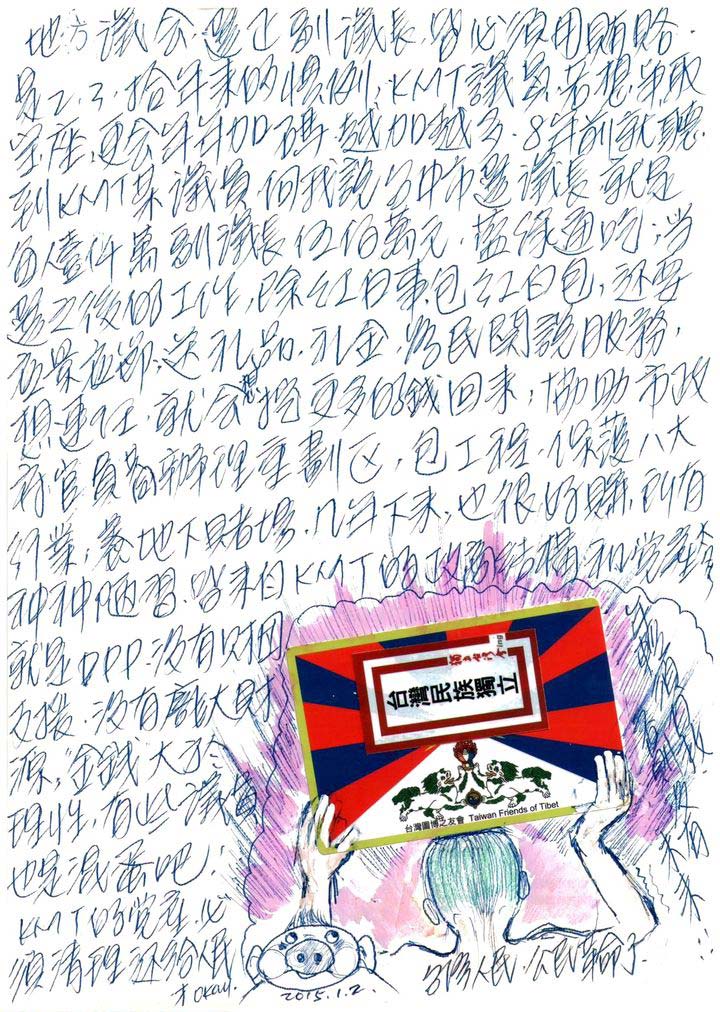 地方議會選正副議長,皆必須用賄賂.
是2,3,拾年來的慣例,KMT議員若想爭取
宝座,更会年年加碼,越加越多.8年前就聽
到KMT某議員向我說台中市選議長就是
每人壹仟萬副議長伍佰萬元.藍綠通吃;当
選之後的工作,除紅白事包紅白包,还要
送礼品.礼金.為民関說服務,
想連任.就会想挖更多的錢回來;協助市政
府官員辦理重劃区,包工程,保護八大
行業,養地下賭場,几年下來,也很好賺,所有
种种陋習.皆來自KMT的
就是DPP.沒有財团
支援.沒有龐大財
源,金錢大於
理性,有此議員
也是混蛋吧!
KMT的党產必
須清理还給人民
才Okay.
2015.1.2.
台灣民族獨立
台灣圖博之友會 Taiwan Friends of Tibet
台灣人民.公民革命了.